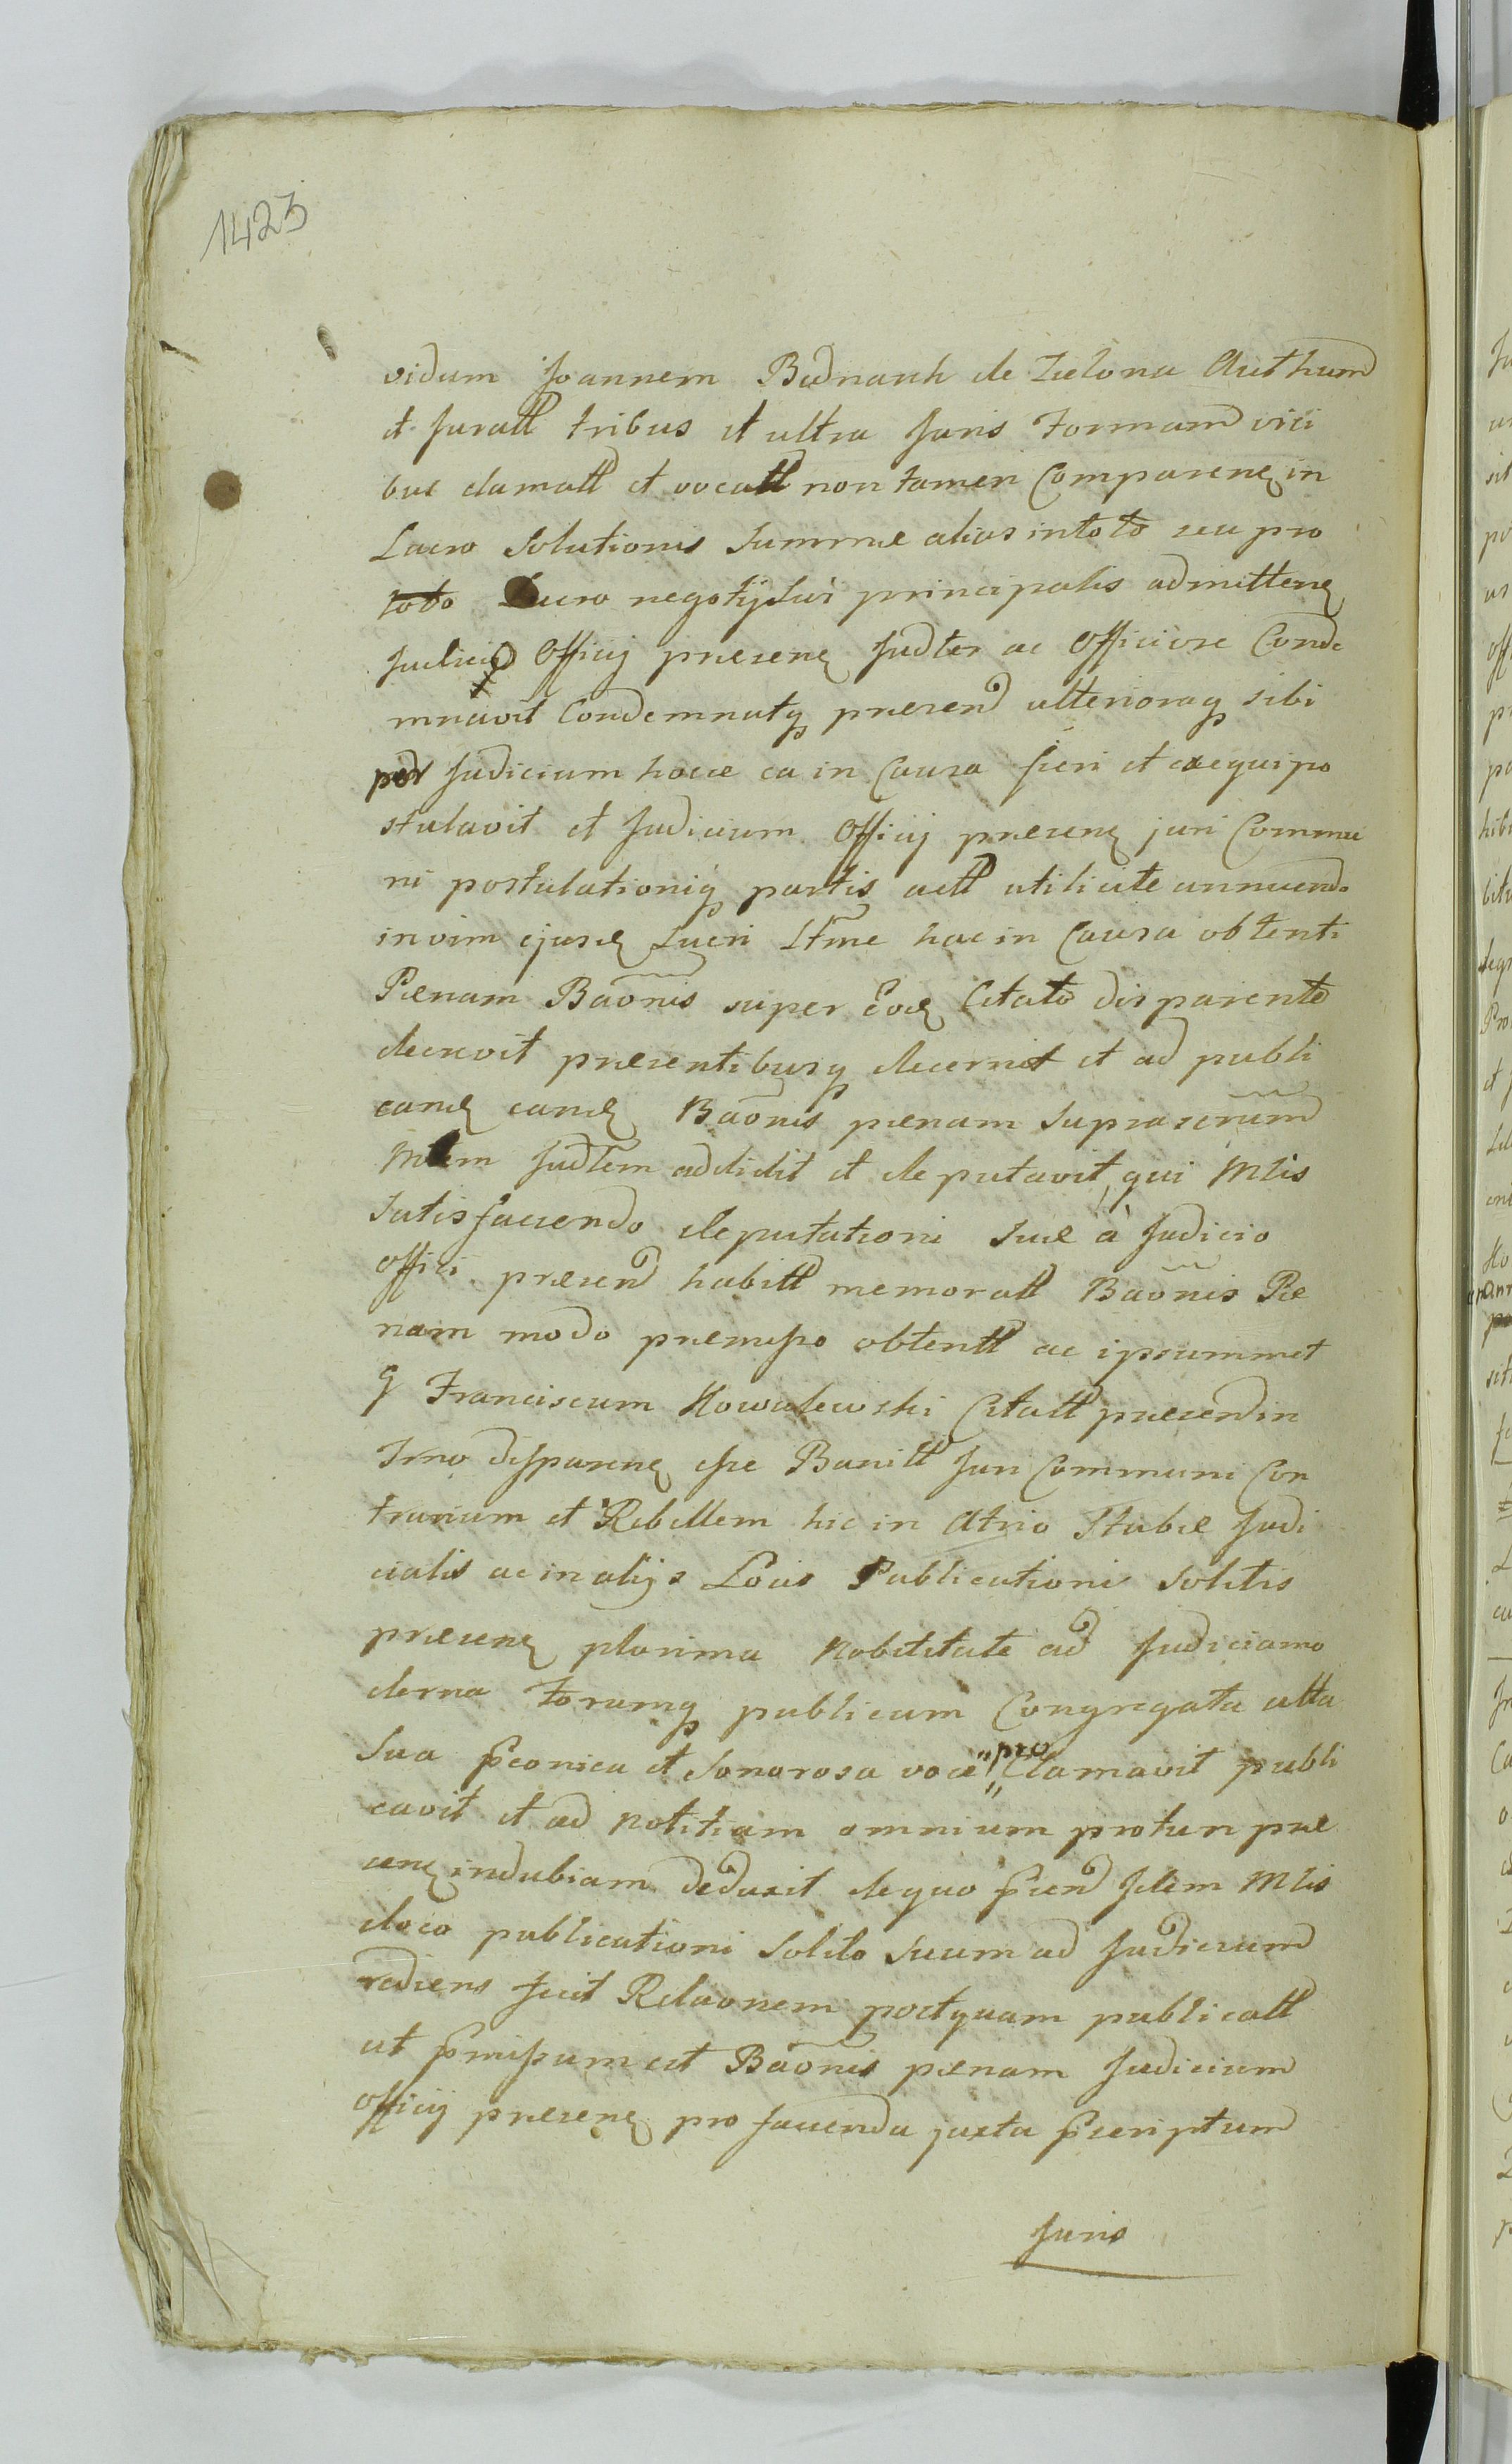 1423
vidum Joannem Bednarch de Zielona Authum
et Juratt tribus et ultra Juris Formam vici
bus clamatt et vocatt non tamen Comparenę in
Lucro Solutionis Summæ alias intoto seu pro
toto Lucro negotij sui principalis admittenę
Judicium Officij præsenę Judłer ac Officiose Conde
mnavit Condemnatq præsend ulterioraq sibi
per Judicium hocce ea in Causa fieri et exequi po
stulavit et Judicium Officij præsenę juri Commu
ni postulationiq partis actt utilicite annuendo
in vim ejusdę Lucri Ltme hac in Causa obtenti
Pænam Baonis super Eodę Citato disparente
decrevit præsentibusq decernit et ad publi
candę eandę Baonis pænam Suprascrum
Mlem Judlem addidit et deputavit, qui Mlis
Satisfaciendo deputationi Suæ à Judicio
offici præsend habitt memoratt Baonis Pæ
nam modo præmisso obtentt ac ipsummet
G Franciscum Kowalewski Citatt præsend in
Trno disparenę esse Banitt Juri Communi Con
trarium et Rebellem hic in Atrio Stubæ Judi
cialis ac in alijs Locis Publicationi Solitis
præsenę plurima Nobilitate ad Judicia mo
derna Forumq publicum Congregata alta
Sua pconica et Sonorosa voce "pro" Clamavit publi
cavit et ad Notitiam omnium protun præ
senę indubiam deduxit de quo pciend Idem Mlis
eloco publicationi Solito Suum ad Judicium
rediens fecit Relaonem postquam publicatt
ut pmissum est Baonis pænam Judicium
officij præsenę pro facienda juxta pscriptum
Juris